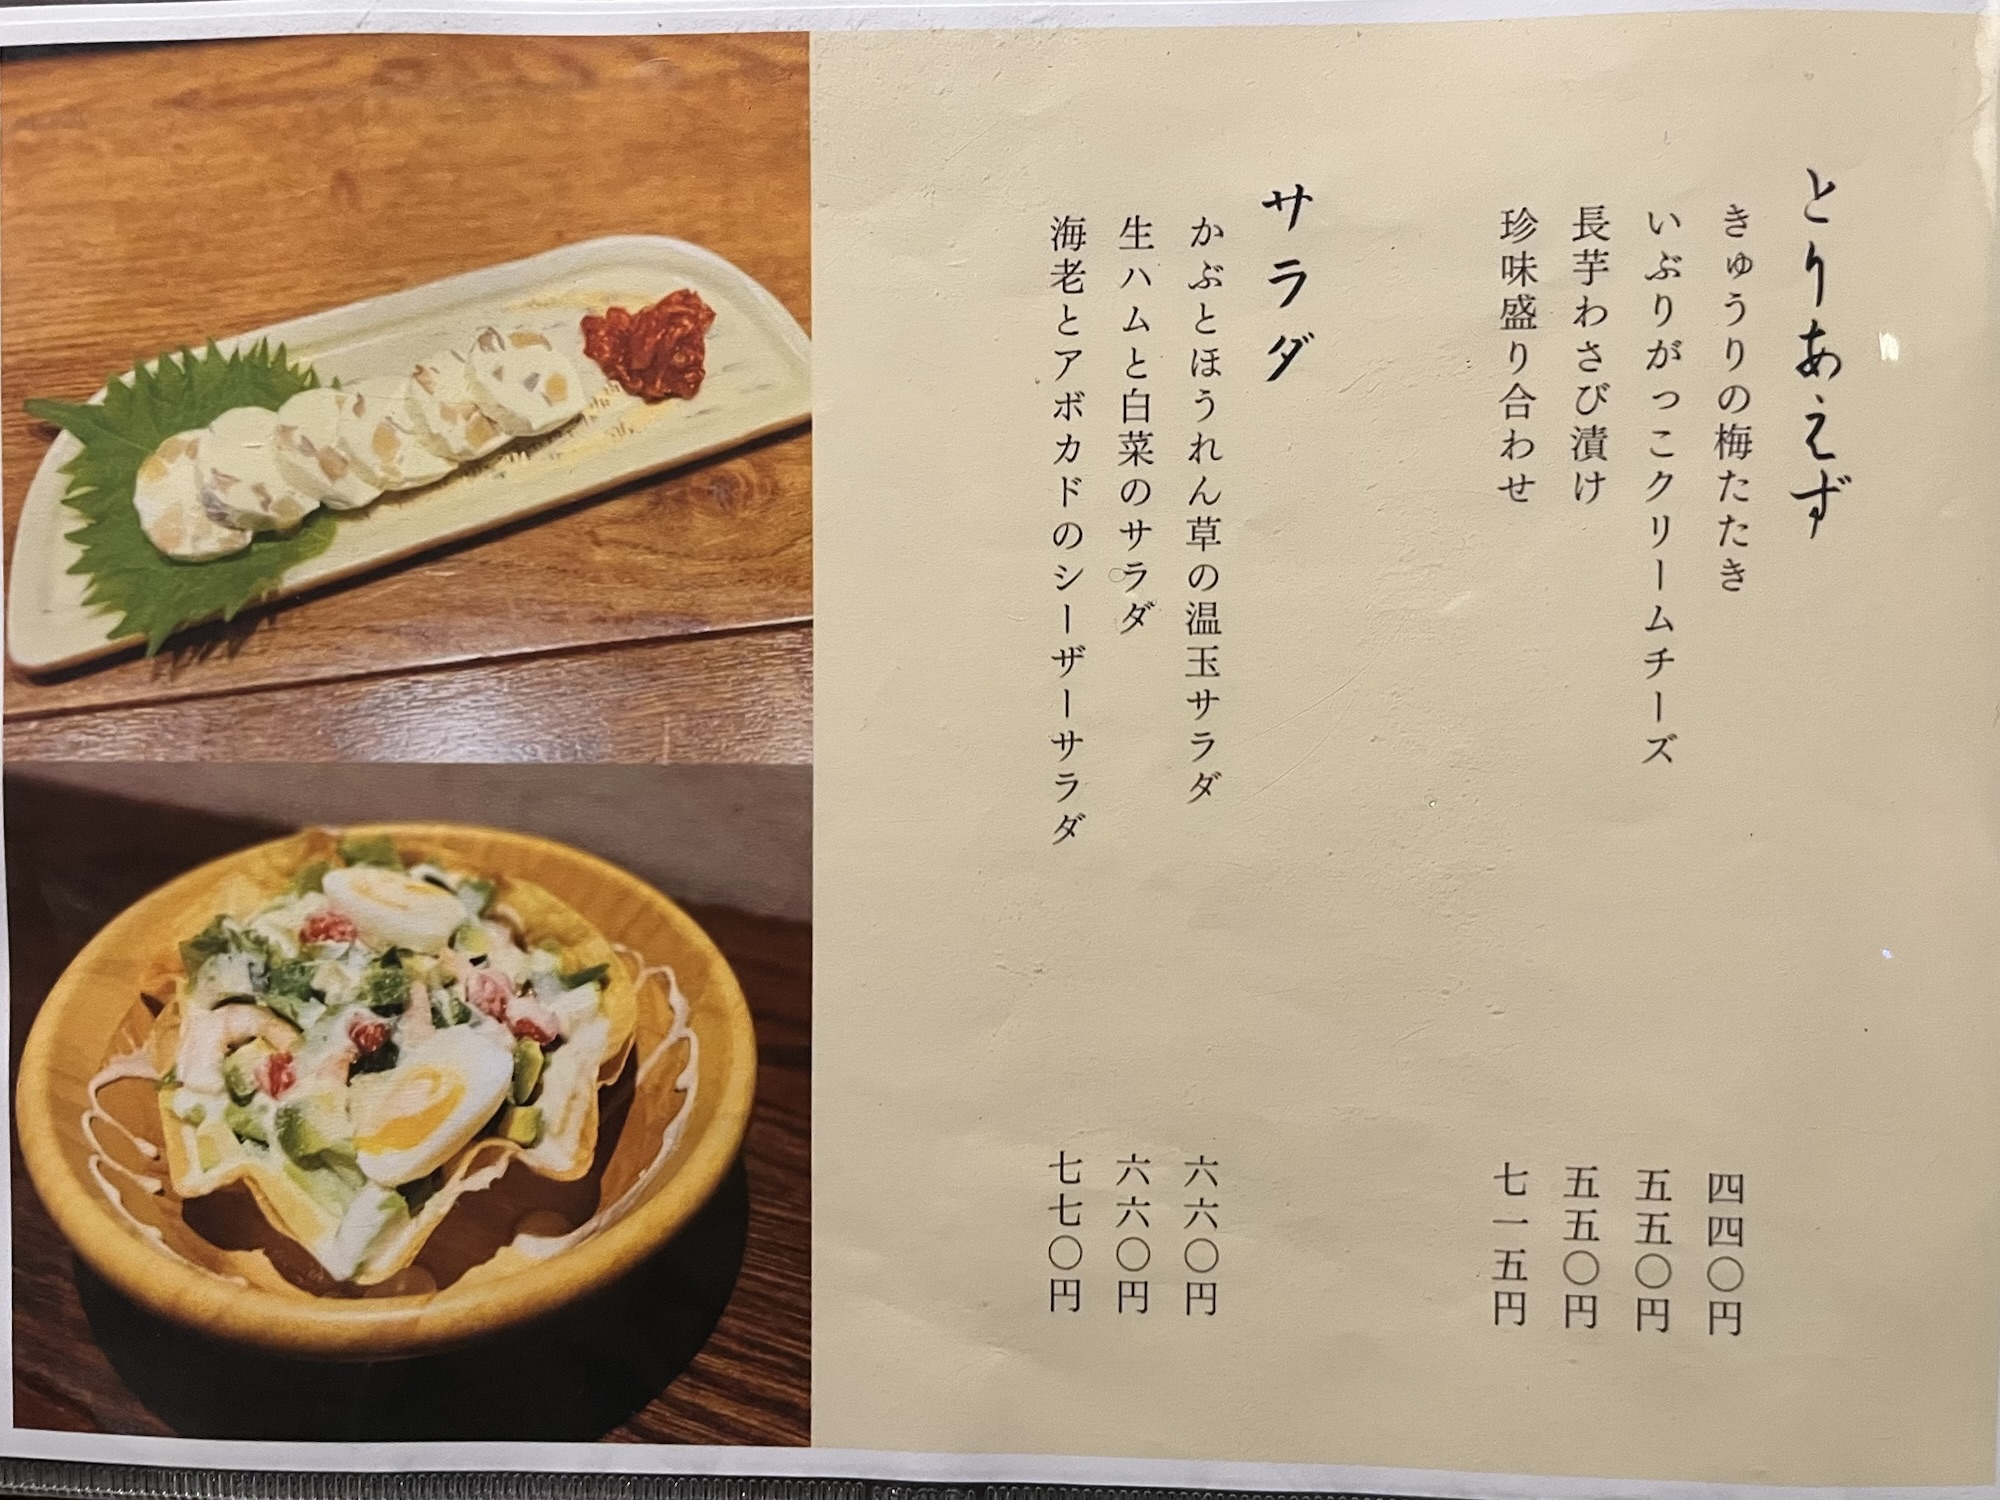 とりあえず
きゅうりの梅たたき 四四〇円
いぶりがっこクリームチーズ 五五〇円
長芋わさび漬け 五五〇円
珍味盛り合わせ 七一五円
サラダ
かぶとほうれん草の温玉サラダ 六六〇円
生ハムと白菜のサラダ 六六〇円
海老とアボカドのシーザーサラダ 七七〇円